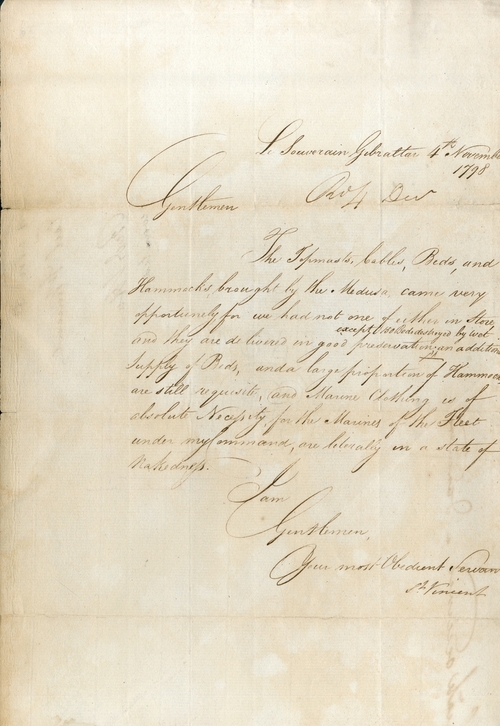 Le Souverain Gibraltar 4th Novembe
1798
Rd 4 Decr
Gentlemen
The Topmasts, Cables, Beds, and
Hammocks brought by the Medusa, came very
opportunely for we had not one of either in Store,
except beds destroyed by wet
and they are delivered in good preservation; an addition
supply of Beds, and a large proportion of Hammoc
are still requisite, and Marine Clothing is of
absolute Necessity, for the Marines of the Fleet
under my Command, are literally in a state of
Nakedness.
I am
Gentlemen,
Your most Obedient Servan
St. Vincent